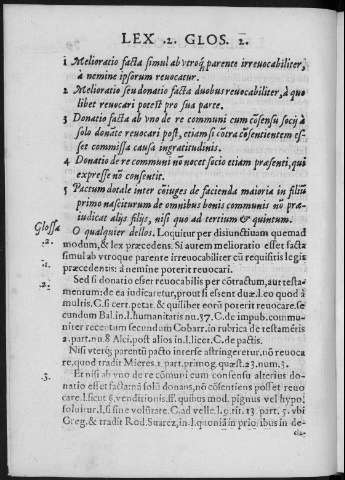 LEX .2. GLOS. 2.
1 Melioratio facta simul ab vtroq; parente irreuocabiliter,
à nemine ipsorum reuocatur.
2 Melioratio seu donatio facta duobus reuocabiliter, à quo
libet reuocari potest pro sua parte.
3 Donatio facta ab vno de re communi cum cõsensu socij à
solo donãte reuocari pôst, etiam si cõtra cõsentientem es-
set commissa causa ingratitudinis.
4 Donatio de re communi nõ nocet socio etiam præsenti, qui
expresse nõ consentit.
5 Pactum dotale inter cõiuges de facienda maioria in filiũ
primo nasciturum de omnibus bonis communis nõ præ-
iudicat alijs filijs, nisi quo ad tertium & quintum.
Glossa
O qualquier dellos. Loquitur per disiunctiuam quemad
.2.
modum, & lex præcedens. Si autem melioratio esset facta
simul ab vtroque parente irreuocabiliter cũ requisitis legis
.1.
præcedentis: à nemine poterit reuocari.
.2.
Sed si donatio esset reuocabilis per cõtractum, aut testa-
mentum: de ea iudicaretur, prout si essent duæ. l. eo quod à
multis. C. si cert. petat. & quilibet eorũ poterit reuocare. se
cundum Bal. in. l. humanitatis nu. 37. C. de impub. commu-
niter recentum secundum Cobarr. in rubrica de testamẽtis
2. part. nu. 8 Alci. post alios in. l. licet. C. de pactis.
Nisi vterq; parentũ pacto interse astringeretur. nõ reuoca
re. quod tradit Mieres. 1 part. primog. quæst. 23. num. 3.
.3.
Et nisi ab vno de re cõmuni cum consensu alterius do-
natio esset facta: nã solũ donans, nõ cõsentiens posset reuo
care. l. sicut 6. venditionis. ff. quibus mod. pignus vel hypo.
soluitur. l. si sine volũtate. C. ad velle. l. 9. tit. 13 part. 5. vbi
Greg. & tradit Rod. Suarez, in. l. quoniã in prioribus in de-